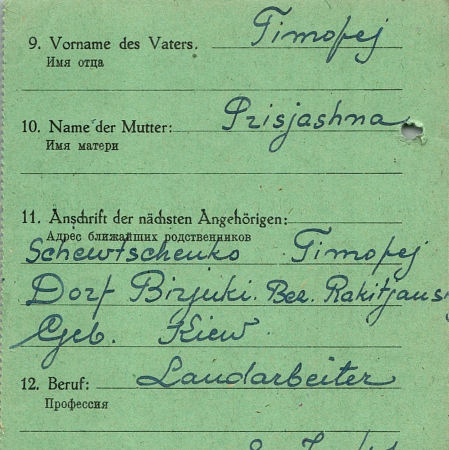 9. Vorname des Vaters. Timofej
Имя отца
10. Name der Mutter: Prisjashna
Имя матери
11. Anschrift der nächsten Angehörigen:
Адрес ближайших родственников
Schewtschenko Timofej
Dorf Birjuki. Bez. Rakitjansk
Geb. Kiew.
12. Beruf: Landarbeiter
Профессия